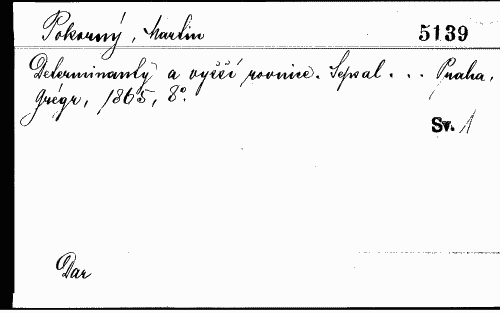 Pokorný, Martin 5139
Determinanty a vyšší rovnice. Sepsal . . . Praha,
Grégr, 1865, 8°.
Sv. 1
Dar